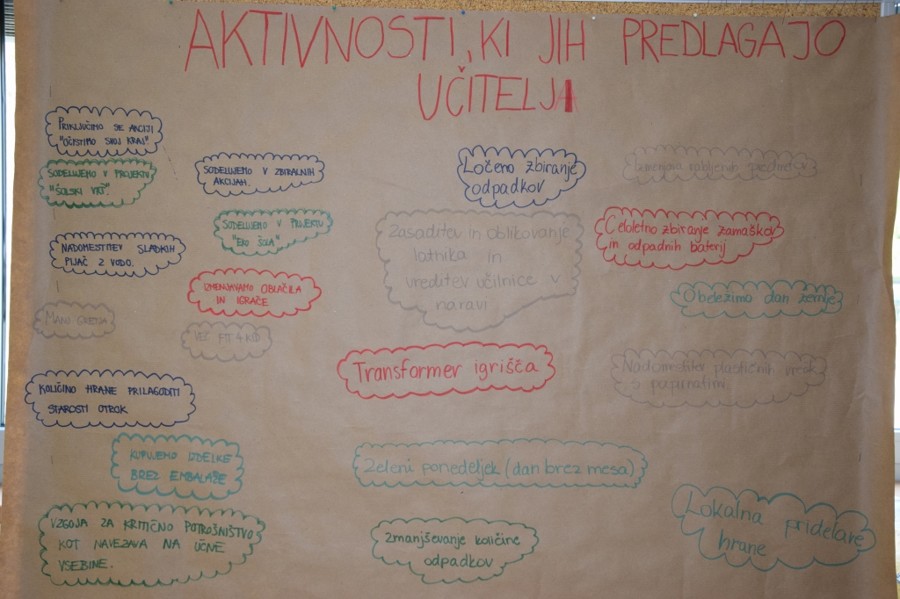 AKTIVNOSTI, KI JIH PREDLAGAJO
UČITELJI
PRIKLJUČIMO SE AKCIJI
"OČISTIMO SVOJ KRAJ"
SODELUJEMO V PROJEKTU
"ŠOLSKI VRT".
SODELUJEMO V ZBIRALNIH
AKCIJAH.
NADOMESTITEV SLADKIH
PIJAČ Z VODO.
SODELUJEMO V PROJEKTU
"EKO ŠOLA"
IZMENJAVAMO OBLAČILA
IN IGRAČE
MANJ
VEČ FIT 4 KID
KOLIČINO HRANE PRILAGODITI
STAROSTI OTROK
KUPUJEMO IZDELKE
BREZ EMBALAŽE
VZGOJA ZA KRITIČNO POTROŠNIŠTVO
KOT NAVEZAVA NA UČNE
VSEBINE.
Ločeno zbiranje
odpadkov
Zasaditev in oblikovanje
latnika in
ureditev učilnice v
naravi
Transformer igrišča
Zeleni ponedeljek (dan brez mesa)
Zmanjševanje količine
odpadkov
Izmenjava rabljenih predmetov
Celoletno zbiranje zamaškov
in odpadnih baterij
Obeležimo dan zemlje
Nadomestitev plastičnih vrečk
s papirnatimi
Lokalna pridelava
hrane